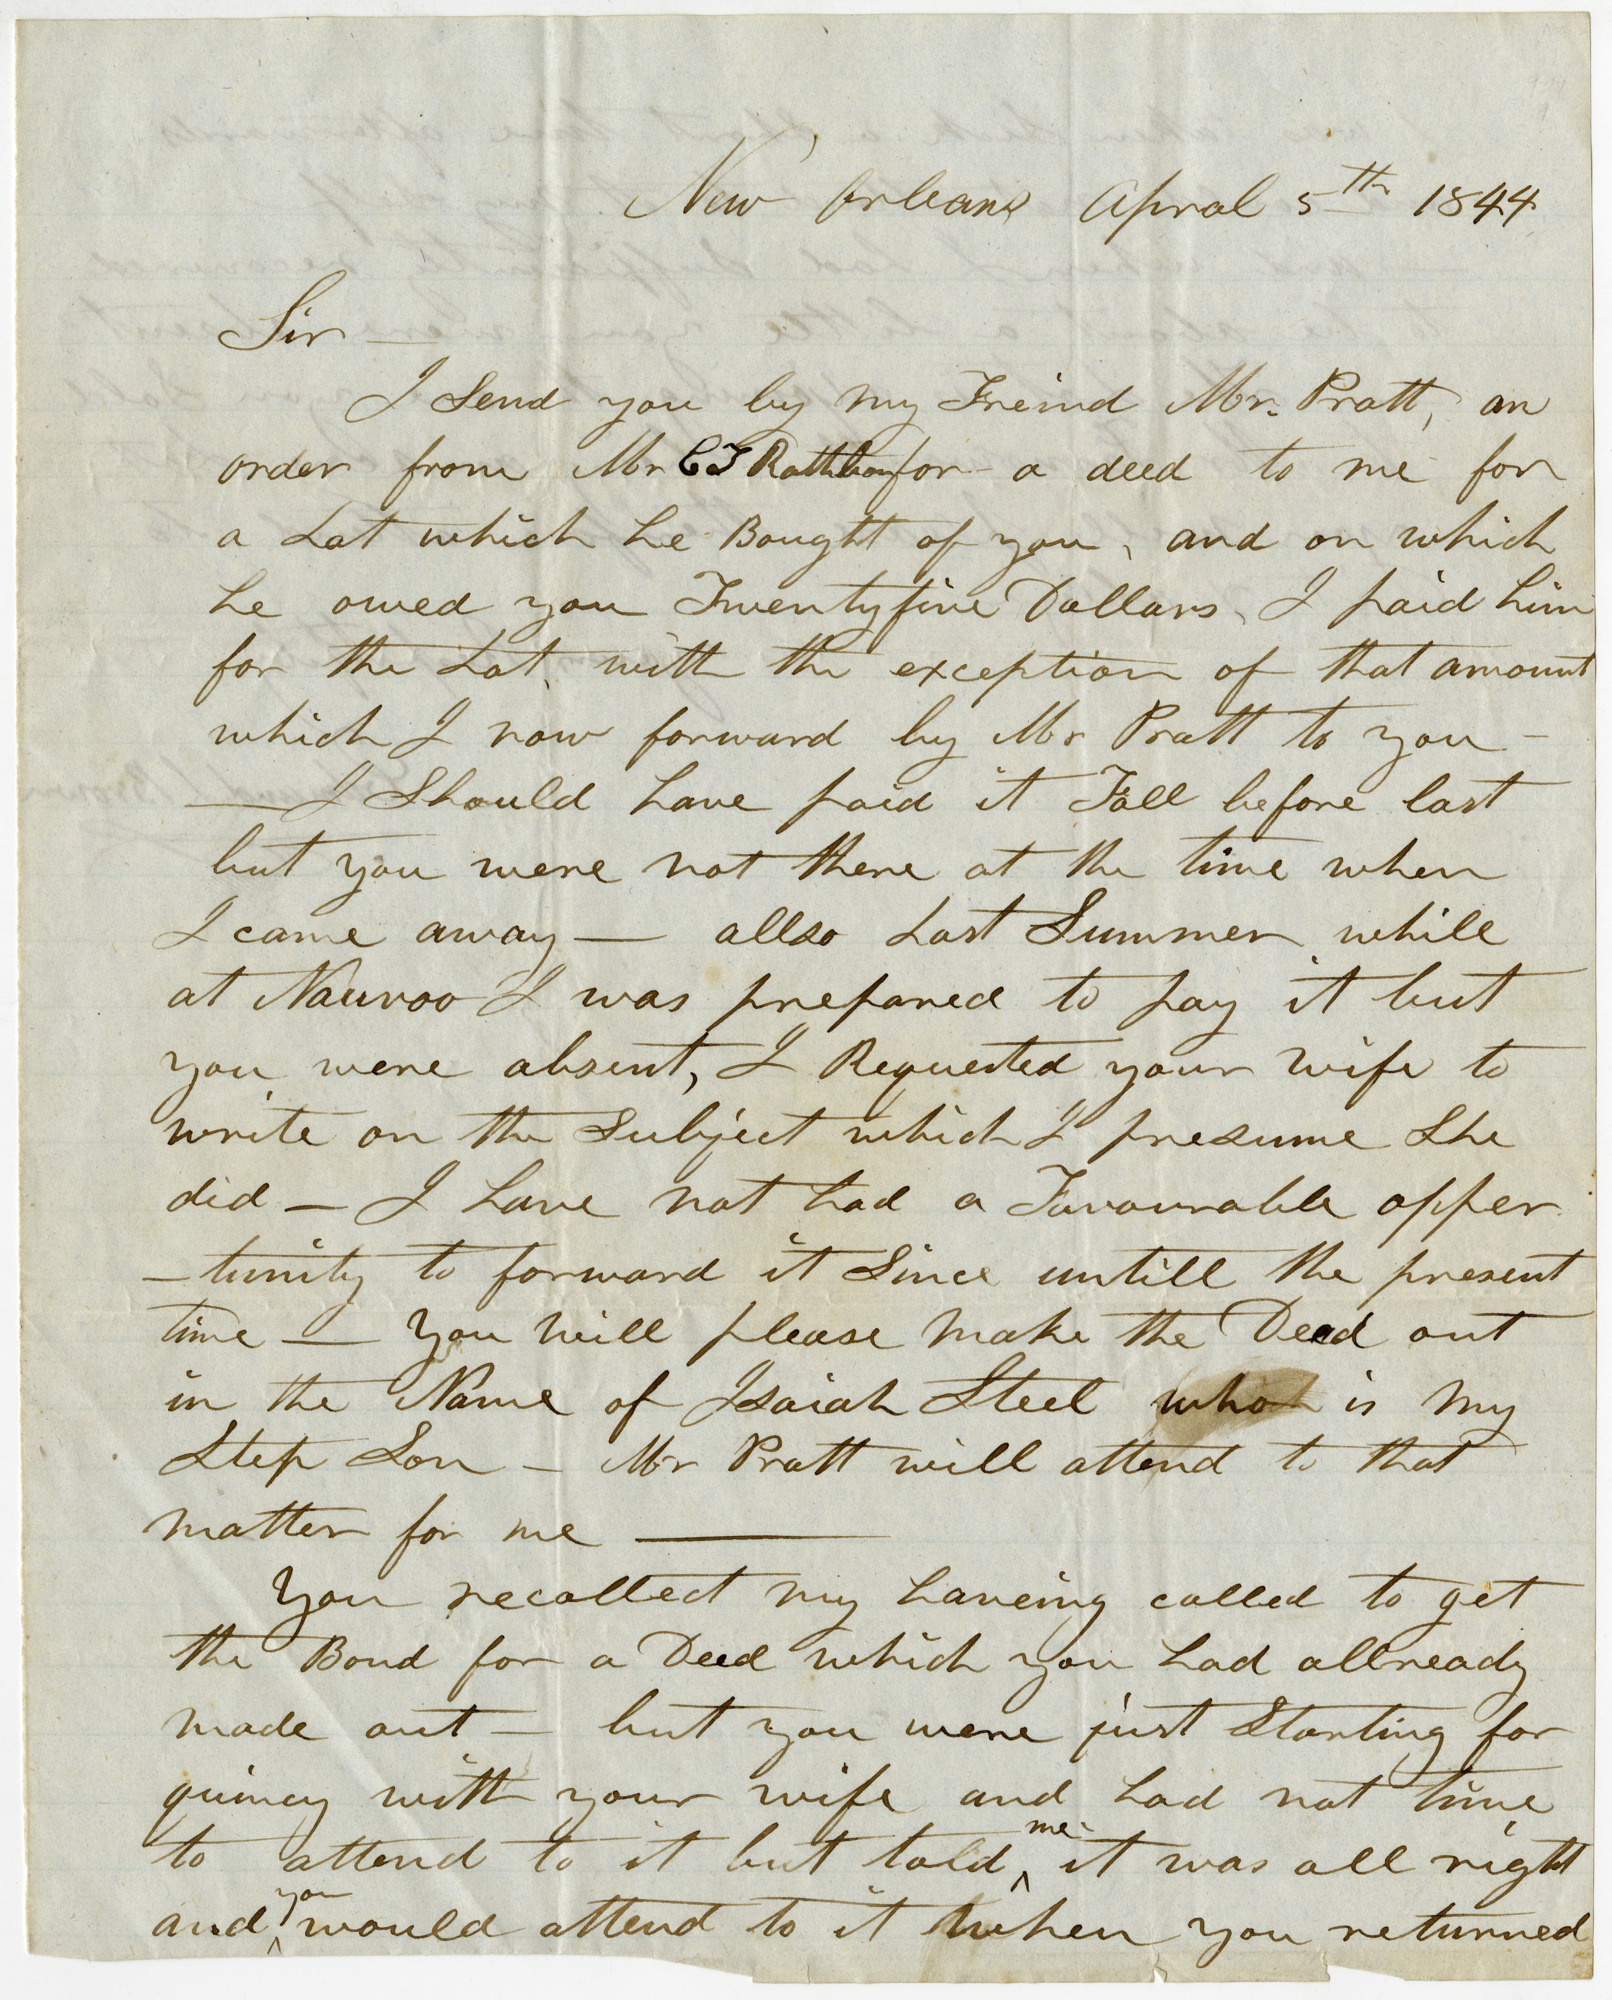 New Orleans Apral 5th 1844
Sir —
I Send you by my Freind Mr. Pratt, an
order from Mr C F Rathbon for a deed to me for
a Lot which he Bought of you, and on which
he owed you Twentyfive Dollars, I paid him
for the Lot, with the exception of that amount
which I now forward by Mr Pratt to you —
— I Should have paid it Fall before last
but you were not there at the time when
I came away — allso Last Summer while
at Nauvoo I was prepared to pay it but
you were absent, I Requested your wife to
write on the Subject which I presume She
did — I have not had a Favourable opper
–tunity to forward it Since untill the present
time — You will please make the Deed out
in the Name of Isaiah Steel who is my
Step Son — Mr Pratt will attend to that
matter for me —
You recollect my haveing called to get
the Bond for a Deed which you had allready
made out — but you were just Starting for
quincy with your wife and had not time
to attend to it but told ^me it was all right
and ^you would attend to it when you returned